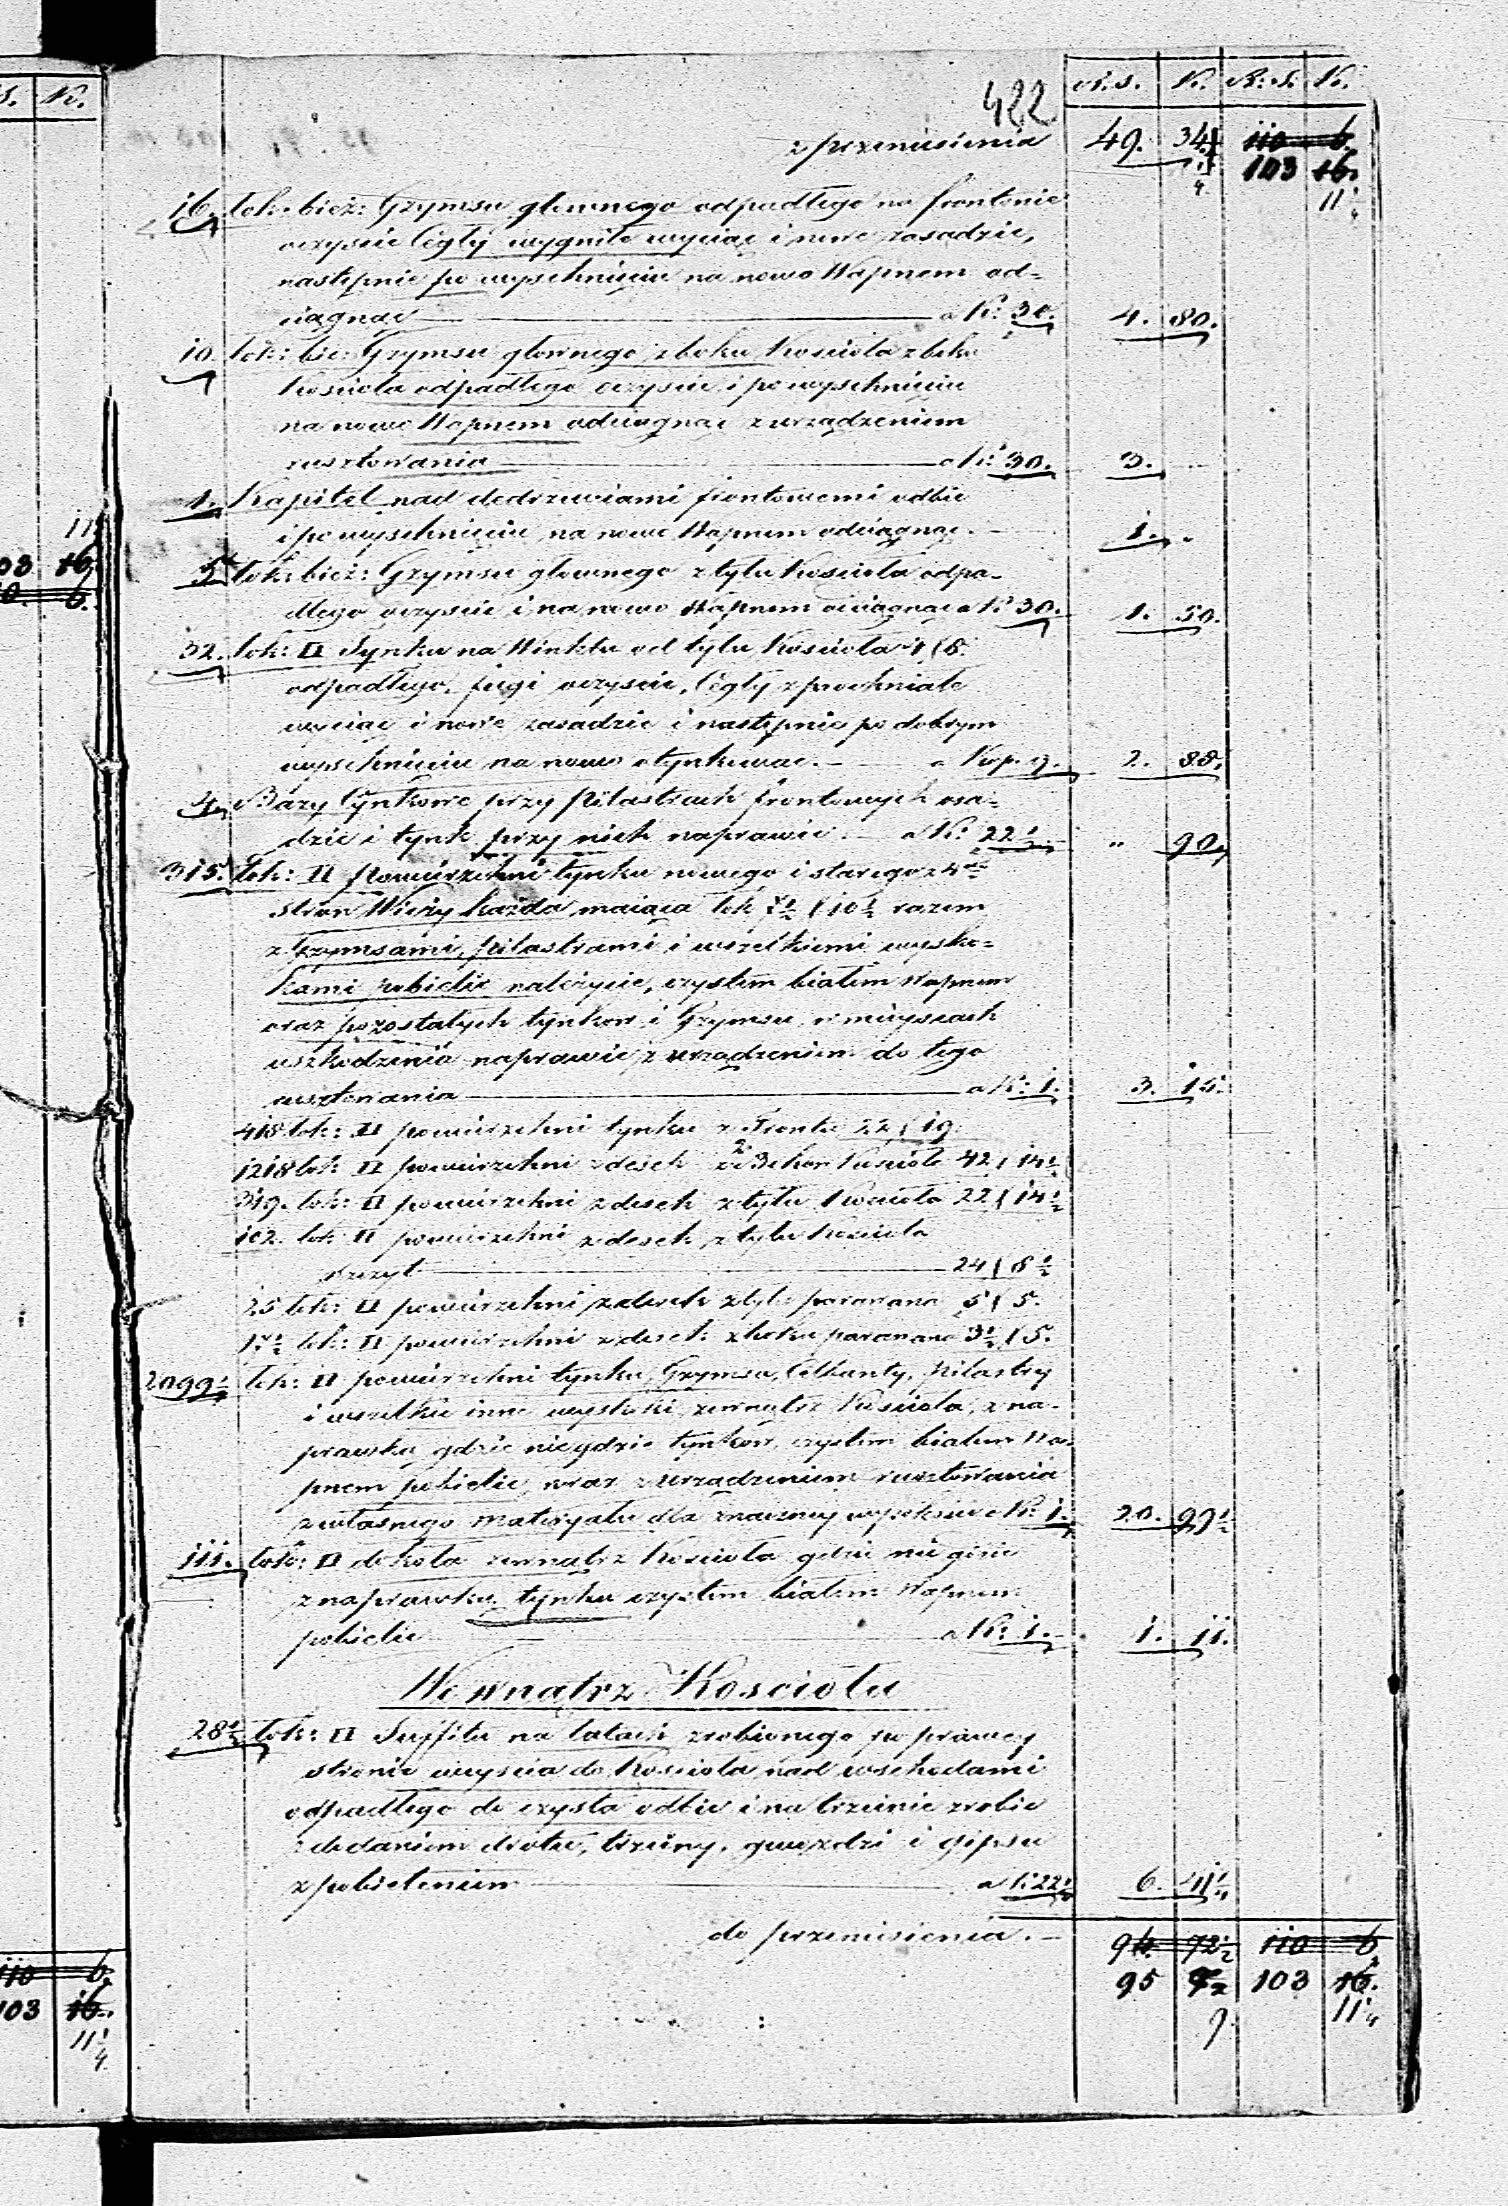 R. s. K. R. s. K.
422
z przeniesienia 49. 34 1/4 110 6.
103 16.
11 1/4
16. łok: bież: Gzymsu głownego odpadłego na froncie
oczyścić Cegły wygniłe wyciąć i nowe zasadzić,
następnie po wyschnięciu na nowo Wapnem od=
ciągnąć a K: 30. 4. 80.
10. łok: bie: Gzymsu głownego z boku Kościoła z boku
Kościoła odpadłego oczyścić i po wyschnięciu
na nowo Wapnem odciągnąć z urządzeniem
rusztowania a K: 30. 3.
1. Kapitel nad dedrzwiami frontowemi odbić
i po wyschnięciu na nowo Wapnem odciągnąć. 1. „
5 łok: bież: Gzymsu głownego z tyłu Kościoła odpa=
dłego oczyścić i na nowo Wapnem ociągnąć a K: 30. 1. 50.
32. łok: □ Tynku na Winklu od tyłu Kościoła 4/8.
odpadłego, fugi oczyścić, Cegły zprochniałe
wyciąć i nowe zasadzić i następnie po dobrym
wyschnięciu na nowo otynkować. a Kop. 9. 2. 88.
4. Bazy tynkowe przy Pilastrach frontowych osa=
dzić i tynk przy nich naprawić. a K: 22 1/2 „ 90.
315. łok: □ Powierzchni tynku nowego i starego z 4ch
stron Wieży każda maiąca łok 7 1/2 / 10 1/2 razem
z Gzymsami, Pilastrami i wszelkiemi wysko=
kami pobielić należycie, czystem białem Wapnem
oraz pozostałych tynkow i Gzymsu w mieyscach
uszkodzenia naprawić z urządzeniem do tego
rusztowania a K: 1. 3. 15.
418 łok: □ powierzchni tynku z Frontu 22/19
1218 łok □ powierzchni zdesek z 2 Bokow Kościoła 42/14 1/2
319. łok: □ powierzchni zdesek z tyłu Kościoła 22/14 1/2
102. łok □ powierzchni zdesek z tyłu Kościoła
szczyt 24/8 1/2
25 łok: □ powierzchni zdesek z tyłu parawana 5/5.
17 1/2 łok: □ powierzchni zdesek z boku parawana 3 1/2 /5.
2099 1/2 łok: □ powierzchni tynku, Gzymsu, Pilastry
i wszelkie inne wyskoki zewnątrz Kościoła, z na=
prawką gdzie nieygdzie tynkow, czystem białem Wa=
pnem pobielić, wraz z urządzeniem rusztowania
z własnego materyału dla znaczney wysokości a K: 1. 20. 99 1/2
111. łok: □ do koła zewnątrz Kościoła gdzie nie gdzie
z naprawką tynku czystem białem Wapnem
pobielić a K: 1. 1. 11.
We wnątrz Kościoła
28 1/2 łok: □ Suffitu na łatach zrobionego po prawey
stronie weyścia do Kościoła nad wschodami
odpadłego do czysta odbić i na trzcinie zrobić
z dodaniem drotu, trzciny, gwozdzi i gipsu
z pobieleniem a K: 22 1/2 6. 41 1/4
do przeniesienia. 94 72 1/2 110 6
95 103 16.
7 11 1/4